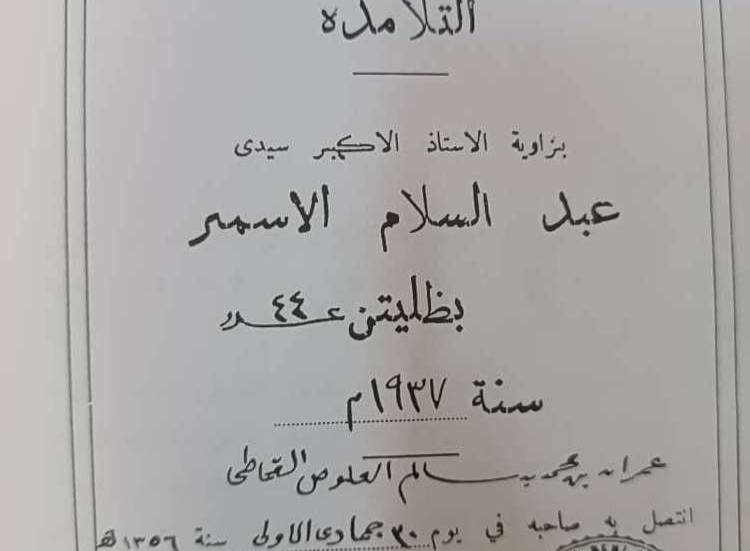 التلامذه
بزاوية الاستاذ الاكبر سيدى
عبد السلام الاسمر
بظليتن عدد ٤٤
سنة ١٩٣٧م
عمران بن محمد بن سالم العلوص القماطى
اتصل به صاحبه في يوم ٣٠ جمادى الاولى سنة ١٣٥٦ﻫ